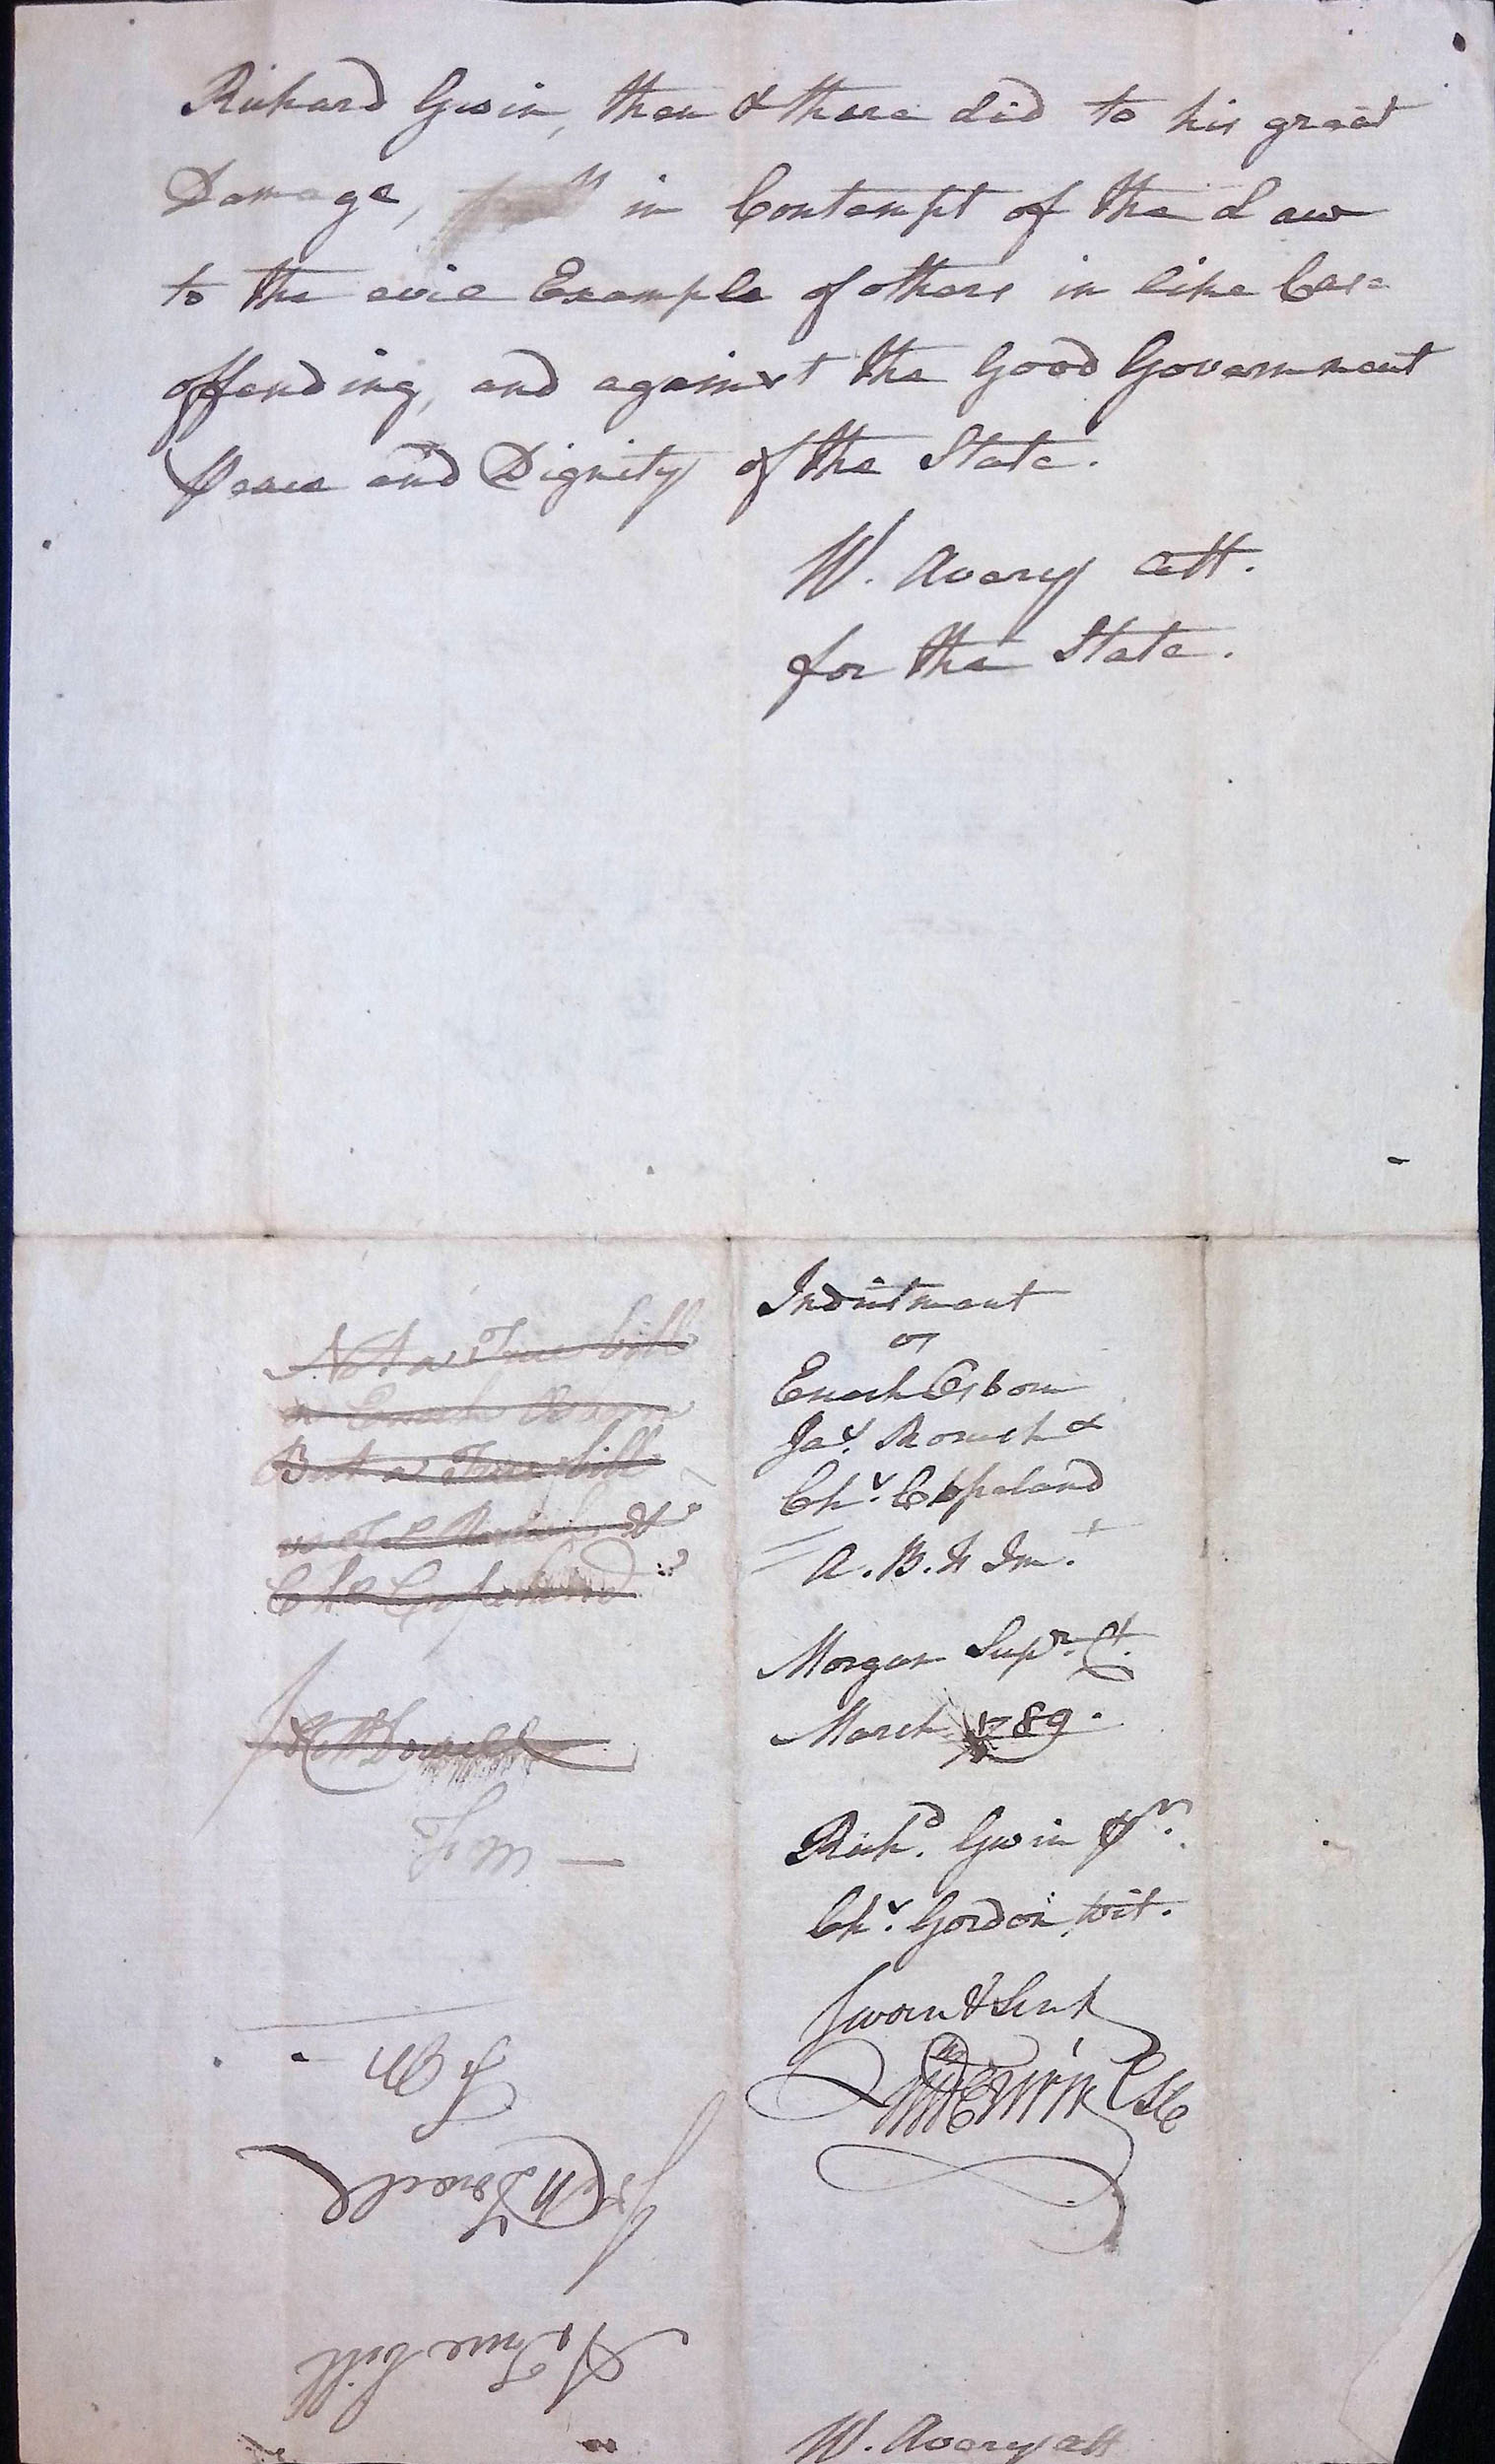 Richard Gwin, then & there did to his great
Damage, in Contempt of the Law
to the evil Example of others in like Case
offending, and against the Good Government
Peace and Dignity of the State.
W. Avery Att.
for the State.
Not a True bill
as Enoch Osborn
But a True bill
as &
Chs Copeland
Indictment
vs
Enoch Osborn
Jas. &
Chs. Copeland
A. B. & Im.t
Morgan Supr. Ct.
March 1789.
Richd. Gwin pr.
Chs. Gordon, Wit.
Sworn & Sent
W W Erwin CSC
W. Avery Att
A True bill
Jos McDowell
F M